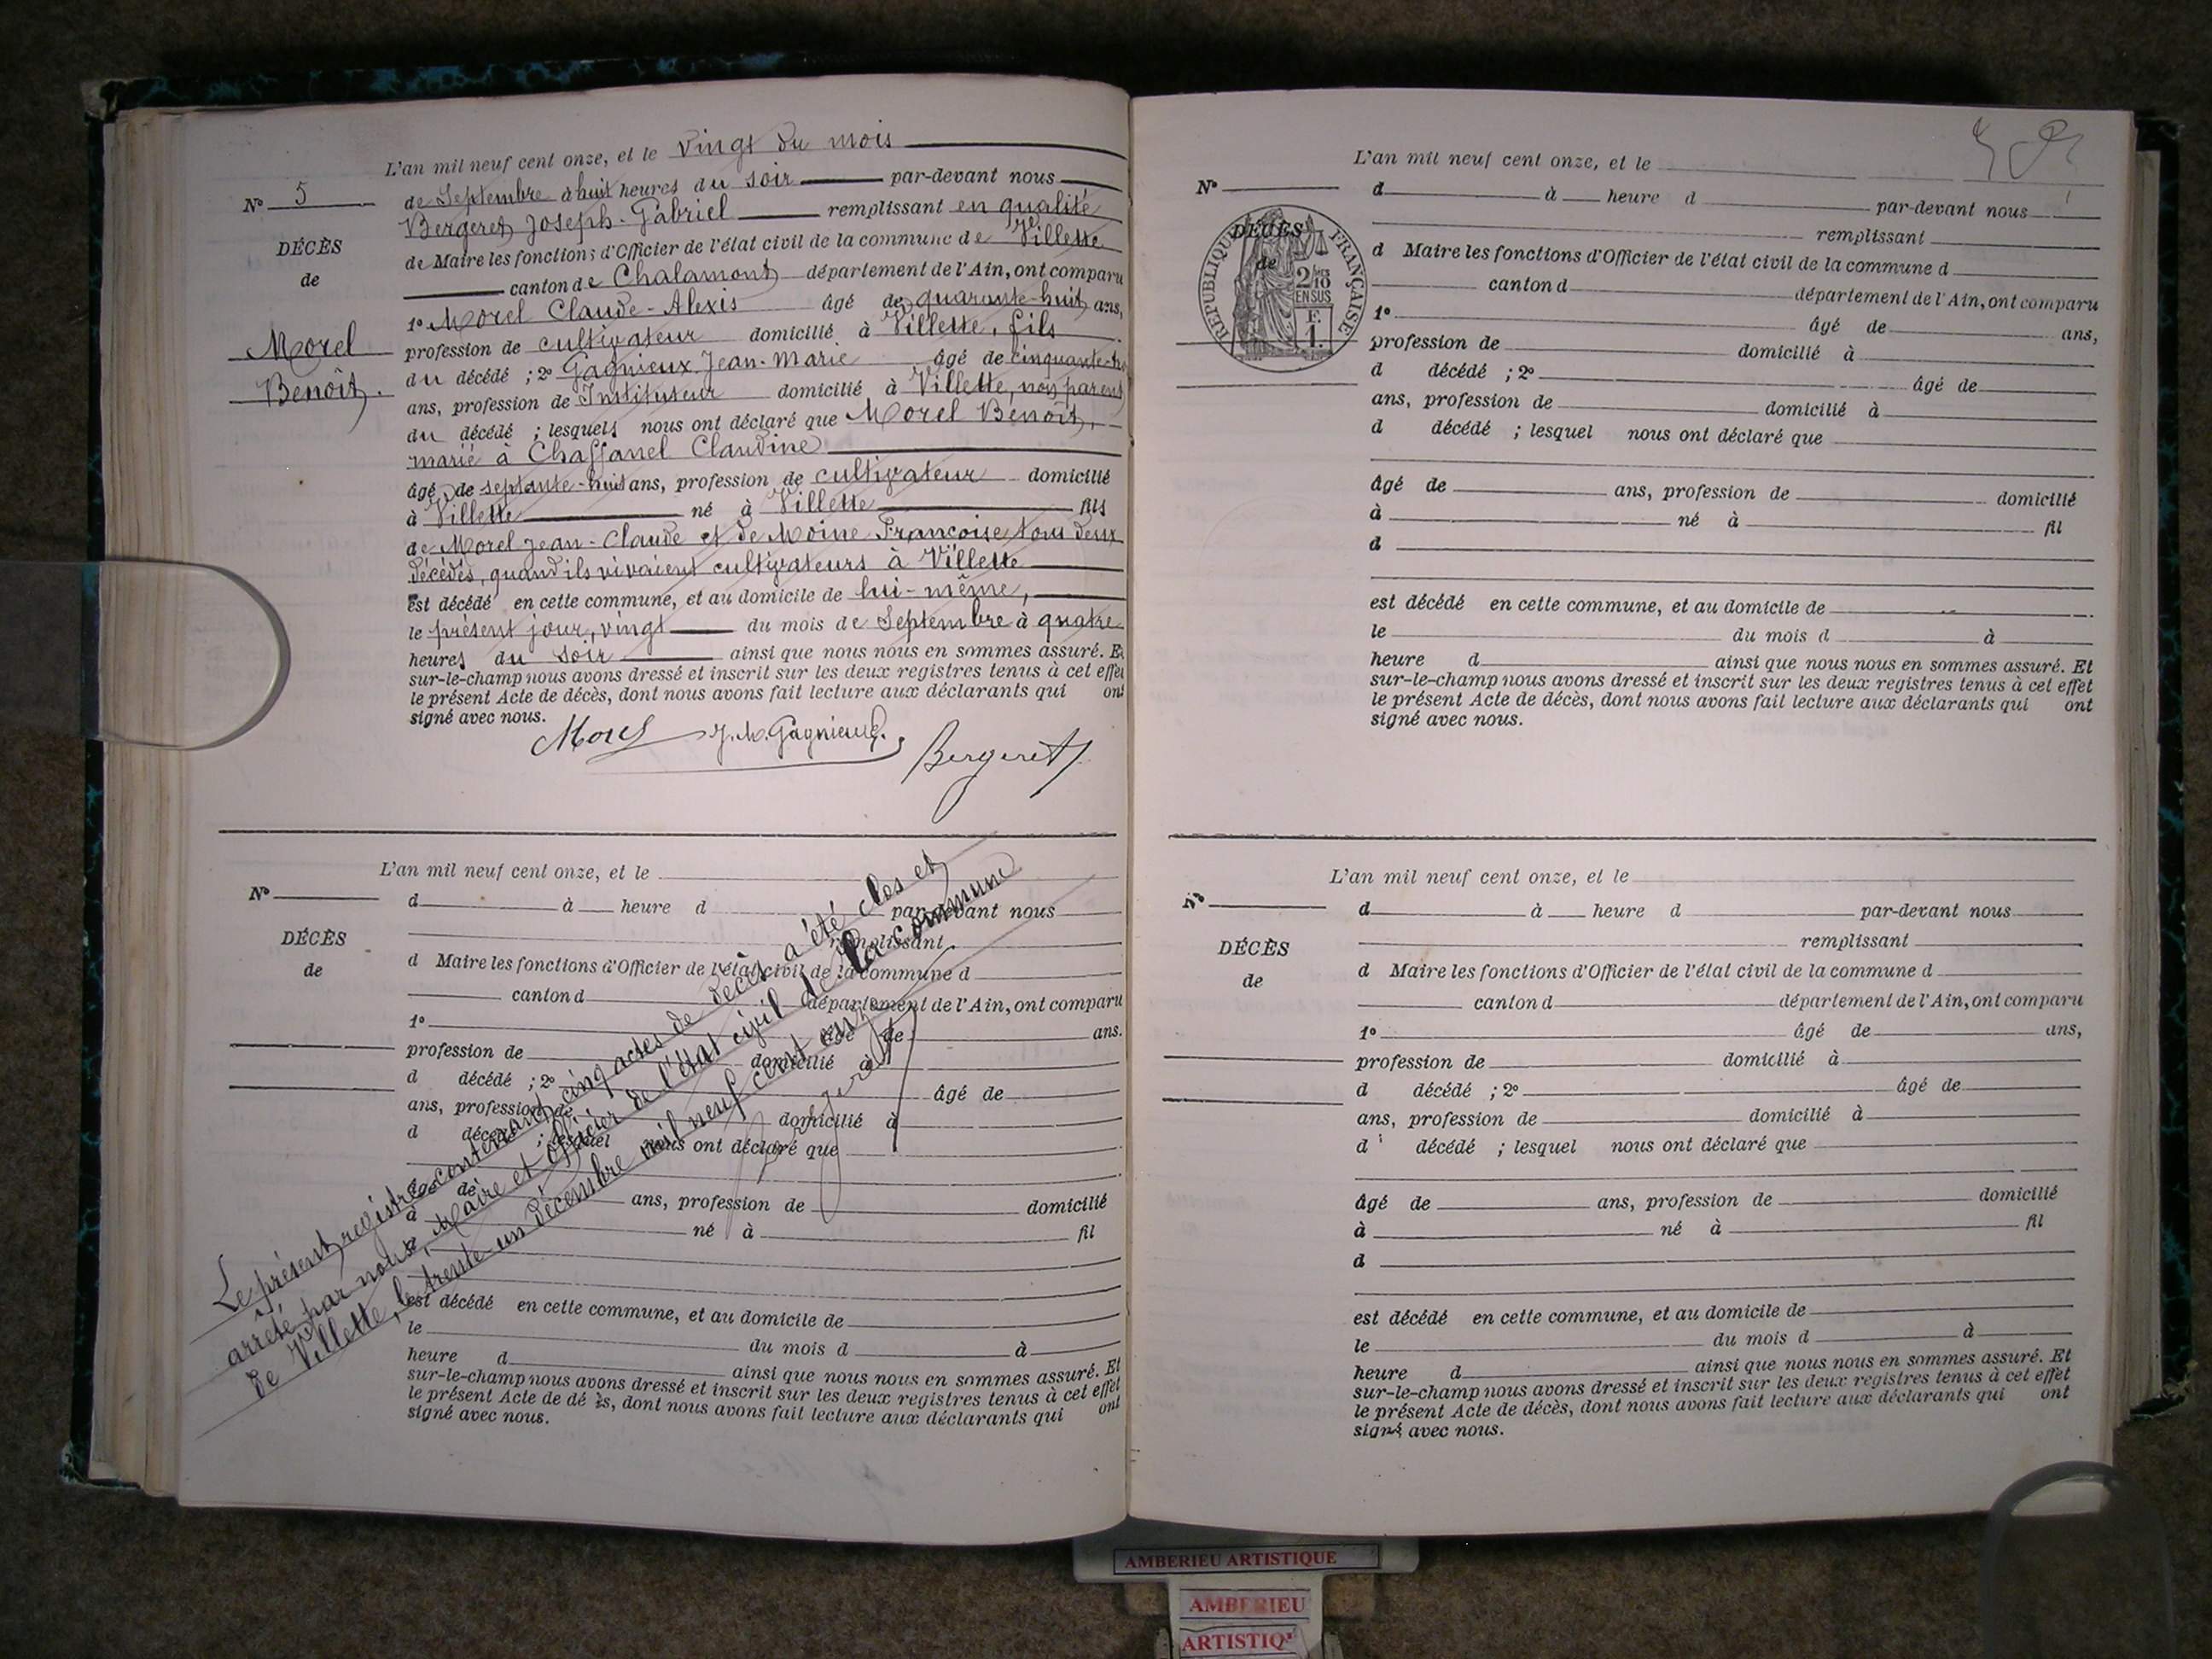 L'an mil neuf cent onze, et le vingt du mois
N° 5
de Septembre à huit heures du soir par-devant nous
Bergeret Joseph-Gabriel remplissant en qualité
DÉCÈS
de
de Maire les fonctions d'Officier de l'état civil de la commune de Villette
canton de Chalamont département de l'Ain, ont comparu
1° Morel Claude-Alexis âgé de quarante-huit ans,
Morel
Benoît.
profession de cultivateur domicilié à Villette, fils
du décédé ; 2° Gagnieux Jean-Marie âgé de cinquante-
ans, profession de Instituteur domicilié à Villette, non parent
du décédé ; lesquels nous ont déclaré que Morel Benoît,
marié à Chaffanel Claudine
âgé de septante-huit ans, profession de cultivateur domicilié
à Villette né à Villette fils
de Morel Jean-Claude et de Moine Françoise tous deux
décédés, quand ils vivaient cultivateurs à Villette
est décédé en cette commune, et au domicile de lui-même,
le présent jour, vingt du mois de Septembre à quatre
heures du soir ainsi que nous nous en sommes assuré. Et
sur-le-champ nous avons dressé et inscrit sur les deux registres tenus à cet effet
le présent Acte de décès, dont nous avons fait lecture aux déclarants qui ont
signé avec nous.
Morel J. M. Gagnieux Bergeret
L'an mil neuf cent onze, et le
N°
d à heure d par-devant nous
remplissant
DÉCÈS
de
d Maire les fonctions d'Officier de l'état civil de la commune d
canton d département de l'Ain, ont comparu
1° âgé de ans.
profession de domicilié à
d décédé ; 2° âgé de
ans, profession de domicilié à
d décédé ; lesquel nous ont déclaré que
âgé de ans, profession de domicilié
à né à fil
d
est décédé en cette commune, et au domicile de
le du mois d à
heure d ainsi que nous nous en sommes assuré. Et
sur-le-champ nous avons dressé et inscrit sur les deux registres tenus à cet effet
le présent Acte de dé ès, dont nous avons fait lecture aux déclarants qui ont
signé avec nous.
Le présent registre contenant cinq actes de décès a été clos et
arrêté par nous, Maire et officier de l'état civil de la commune
de Villette, le trente-un décembre mil neuf cent onze
Bergeret
L'an mil neuf cent onze, et le
N°
d à heure d par-devant nous
remplissant
DÉCÈS
de
RÉPUBLIQUE FRANÇAISE
2/10
EN SUS
F.
1.
d Maire les fonctions d'Officier de l'état civil de la commune d
canton d département de l'Ain, ont comparu
1° âgé de ans,
profession de domicilié à
d décédé ; 2° âgé de
ans, profession de domicilié à
d décédé ; lesquel nous ont déclaré que
âgé de ans, profession de domicilié
à né à fil
d
est décédé en cette commune, et au domicile de
le du mois d à
heure d ainsi que nous nous en sommes assuré. Et
sur-le-champ nous avons dressé et inscrit sur les deux registres tenus à cet effet
le présent Acte de décès, dont nous avons fait lecture aux déclarants qui ont
signé avec nous.
L'an mil neuf cent onze, et le
N°
d à heure d par-devant nous
remplissant
DÉCÈS
de
d Maire les fonctions d'Officier de l'état civil de la commune d
canton d département de l'Ain, ont comparu
1° âgé de ans,
profession de domicilié à
d décédé ; 2° âgé de
ans, profession de domicilié à
d décédé ; lesquel nous ont déclaré que
âgé de ans, profession de domicilié
à né à fil
d
est décédé en cette commune, et au domicile de
le du mois d à
heure d ainsi que nous nous en sommes assuré. Et
sur-le-champ nous avons dressé et inscrit sur les deux registres tenus à cet effet
le présent Acte de décès, dont nous avons fait lecture aux déclarants qui ont
signé avec nous.
AMBERIEU ARTISTIQUE
AMBERIEU
ARTISTIQ